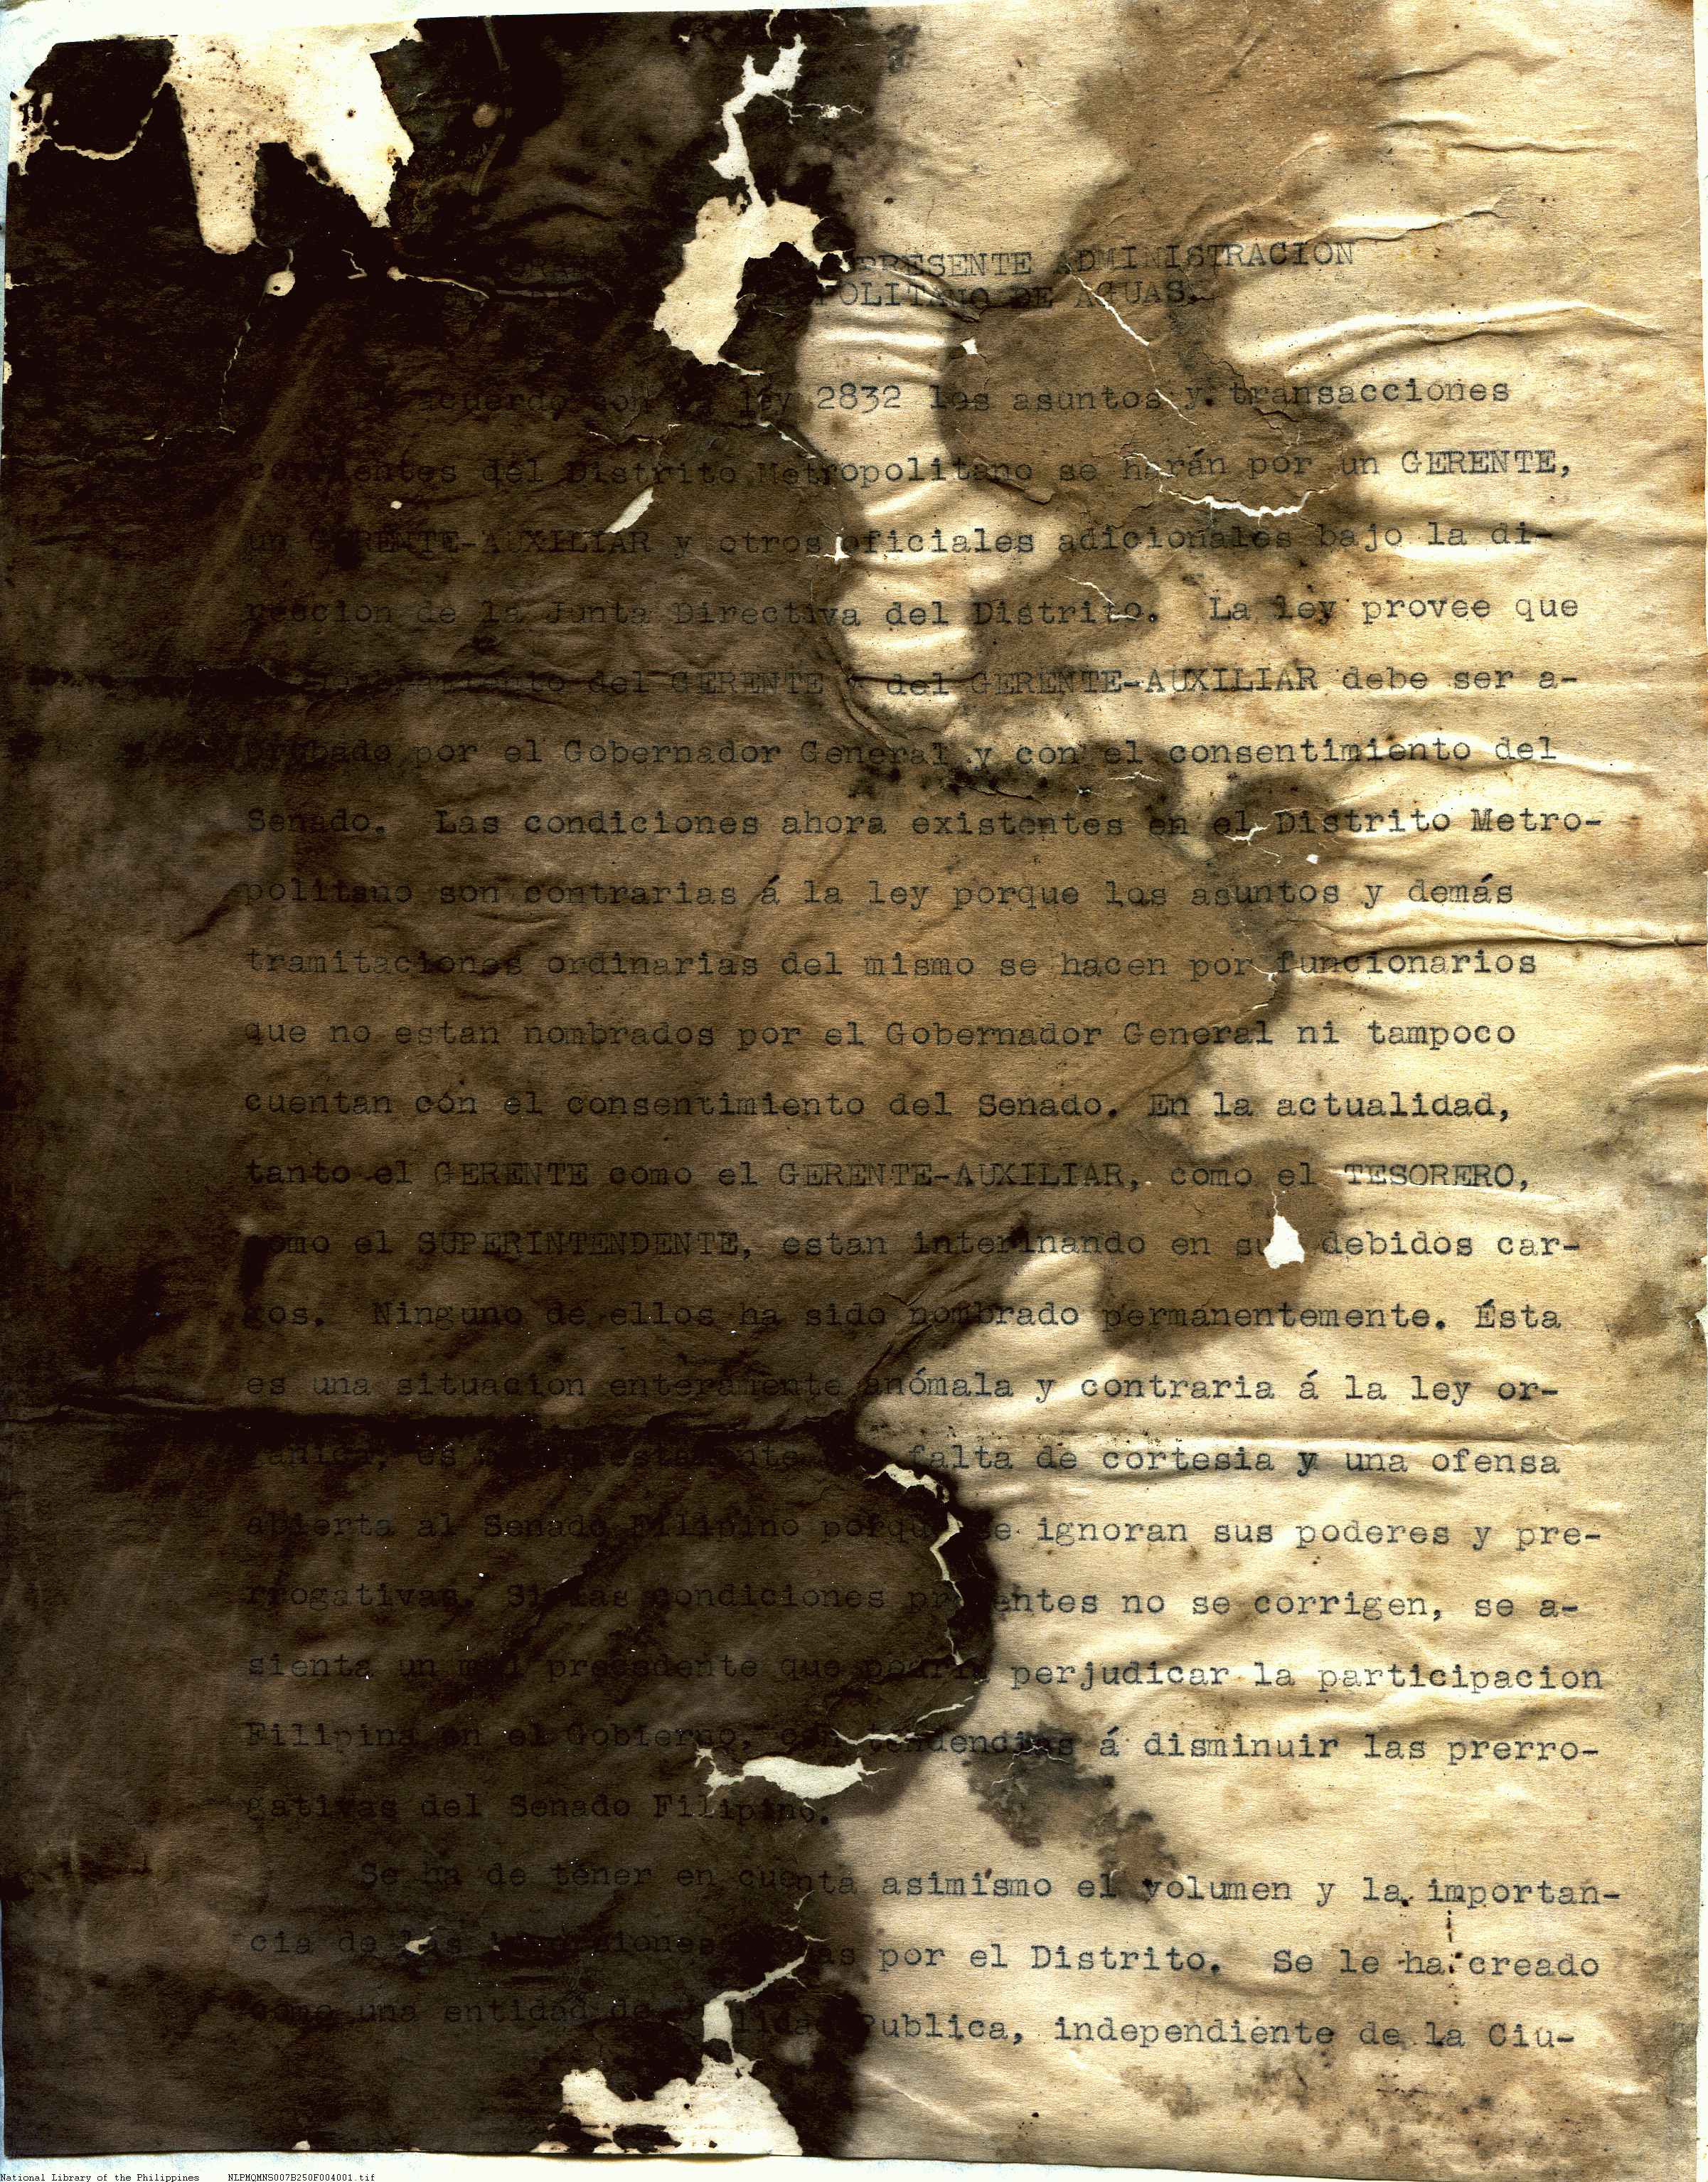 PRESENTE ADMINISTRACION
POLITANO DE AGUAS.
acuerdo con la ley 2832 los asuntos y transacciones
corrientes del Distrito Metropolitano se harán por un GERENTE,
un GERENTE-AUXILIAR y otros oficiales adicionales bajo la di-
reccion de la Junta Directiva del Distrito. La ley provee que
nombramiento del GERENTE y del GERENTE-AUXILIAR debe ser a-
probado por el Gobernador General y con el consentimiento del
Senado. Las condiciones ahora existentes en el Distrito Metro-
politano son contrarias á la ley porque los asuntos y demás
tramitaciones ordinarias del mismo se hacen por funcionarios
que no estan nombrados por el Gobernador General ni tampoco
cuentan cón el consentimiento del Senado. En la actualidad,
tanto el GERENTE como el GERENTE-AUXILIAR, como el TESORERO,
como el SUPERINTENDENTE, estan interinando en sus debidos car-
gos. Ninguno de ellos ha sido nombrado permanentemente. Ésta
es una situacion enteramente anómala y contraria á la ley or-
ganica, es falta de cortesia y una ofensa
abierta al Senado Filipino porque se ignoran sus poderes y pre-
rrogativas. Si las condiciones presentes no se corrigen, se a-
sienta un mal precedente que podria perjudicar la participacion
Filipina en el Gobierno, con tendencias á disminuir las prerro-
gativas del Senado Filipino.
Se ha de tener en cuenta asimismo el volumen y la importan-
cia de las por el Distrito. Se le ha creado
como una entidad de Publica, independiente de la Ciu-
National Library of the Philippines NLPMQMNS007B250F004001.tif